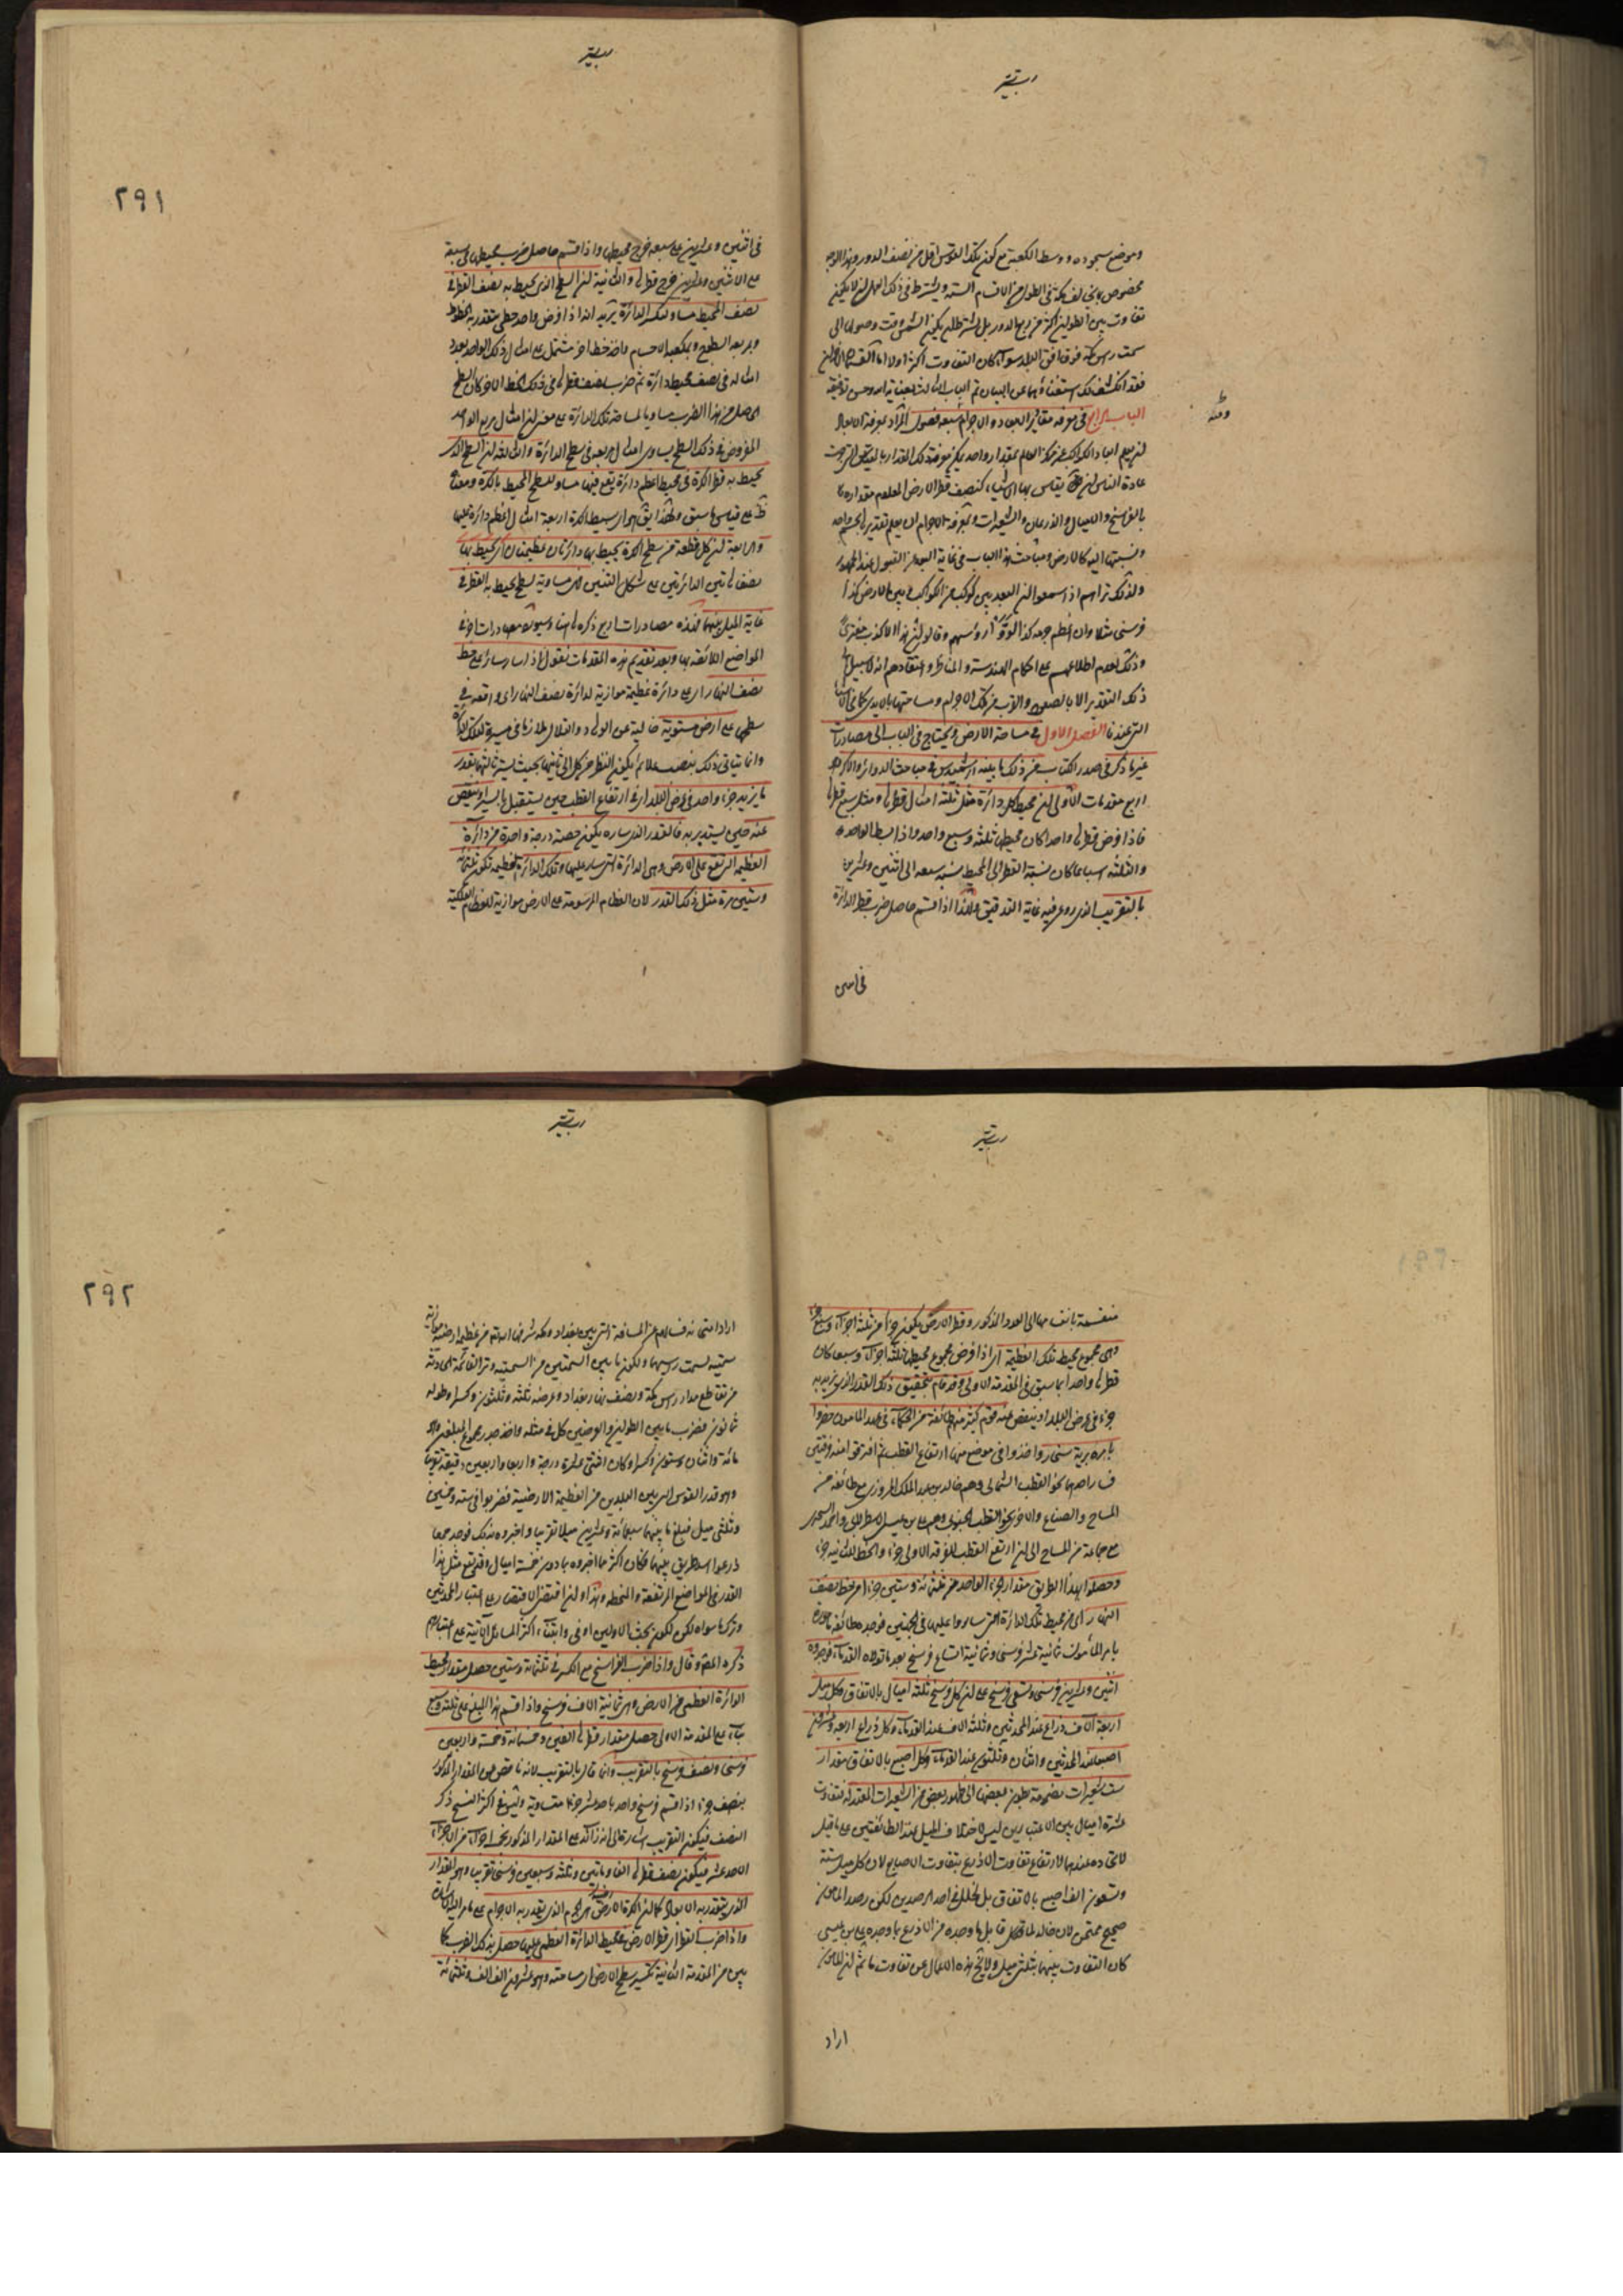 وموضع سجوده ووسط الكعبة مع كون تلك القوس اقل من نصف الدور وهذا الوجه
مخصوص بما يخالف مكة في الطول من الاقسام الستة ويشترط في ذلك العمل ان لا يكون
تفاوت بين الطولين اكثر من ربع الدور بل يشترط ان يكون الشمس وقت وصولها الى
سمت راس مكة فوق افق البلد سواء كان التفاوت اكثر اولا
فقد انكشف لك استغناؤهما عن البيان تم الباب الثالث بعناية الله وحسن توفيقه
الباب الرابع في معرفة مقادير الابعاد والاجرام سبعة فصول المراد بمعرفة الابعاد
ان يعلم ابعاد الكواكب عن مركز العالم بمقدار واحد يمكن معرفة ذلك المقدار بالمقاييس التي جرت
عادة الناس ان يقاس بها الاشياء كنصف قطر الارض المعلوم مقداره
بالفراسخ والاميال والاذرعان والشعيرات وبمعرفة الاجرام ان يعلم تقدير الجسم واحد
ونسبتها اليه كالارض ومباحث هذا الباب في غاية البعد عن القبول عند الجمهور
ولذلك تراهم اذا سمعوا ان البعد بين كوكب من الكواكب وبين الارض كذا
فرسخ مثلا وان عظم جرمه كذا لووا رؤسهم وقالوا ان هذا الا كذب مفترى
وذلك لعدم اطلاعهم على احكام الهندسة والمناظر واعتقادهم انه لا سبيل الى
ذلك التقدير الا بالصعود والقرب من تلك الاجرام ومساحتها بالايدي كما في الاشياء
التي عندنا الفصل الاول في مساحة الارض ويحتاج في الباب الى مصادرات
غير ما ذكر في صدر الكتاب فمن ذلك ما بينه ارشميدس في مباحث الدوائر والاكر وهو
اربع مقدمات الاولى ان محيط كل دائرة مثل ثلثة امثال قطرها ومثل سبع قطرها
فاذا فرض قطرها واحدا كان محيطها ثلثة وسبع واحد واذا بسط الواحد
والثلثة اسباعا كان نسبة القطر الى المحيط نسبة سبعة الى اثنين وعشرين
بالتقريب الذي روعي فيه غاية التدقيق فلهذا اذا قسم حاصل ضرب قطر الدائرة
في اثنين
٢٩١
في اثنين وعشرين على سبعة خرج محيطها واذا قسم حاصل ضرب محيطها في سبعة
على الاثنين وعشرين خرج قطرها والثانية ان السطح الذي يحيط به نصف القطر في
نصف المحيط مساو لتلك الدائرة يريد انه اذا فرض واحد خطي يتقدر به الخطوط
وبمربعه السطوح وبمكعبه الاجسام واخذ خط اخر مشتمل على امثال ذلك الواحد بعدد
امثاله في نصف محيط دائرة ثم ضرب نصف قطرها في ذلك الخط الاخر كان السطح
الحاصل من هذا الضرب مساويا لمساحة تلك الدائرة على معنى ان امثال مربع الواحد
المفروض في ذلك السطح يساوي امثال مربعه في سطح الدائرة والثالثة ان السطح الذي
يحيط به قطر الكرة في محيط اعظم دائرة تقع فيها مساو للسطح المحيط بالكرة ومعناه
ظ على قياس ما سبق ولهذا يق ان بسيط الكرة اربعة امثال اعظم دائرة عليها
والرابعة ان كل قطعة من سطح الكرة يحيط بها دائرتان عظيمتان اي يحيط بها
نصفا تين الدائرتين على شكل التنين فهي مساوية لسطح يحيط به القطر في
غاية الميل بينهما فهذه مصادرات اربع ذكرها هنا وسيورد مصادرات اخر في
المواضع اللائقة بها وبعد تقديم هذه المقدمات نقول اذا سار سائر على خط
نصف النهار اي على دائرة عظيمة موازية لدائرة نصف النهار اي واقعة في
سطحها على ارض مستوية خالية عن الوهاد والتلال ملازما في مسيره لتلك الدائرة
وانما يتاتى ذلك بنصب علائم يكون النظر من كل الى ثانيتها بحيث يستر ثالثتها بقدر
ما يزيد جزء واحد في عرض البلد اي ارتفاع القطب حين يستقبل بالسير او ينقص
عنه حين يستدبر به فالقدر الذي ساره يكون حصة درجة واحدة من دائرة
العظيمة التي تقع على الارض وهي الدائرة التي سار عليها وتلك الدائرة العظيمة تكون ثلثمائة
وستين مرة مثل ذلك القدر لان العظام المرسومة على الارض موازية للعظام الفلكية
منقسمة بانقسامها الى العدد المذكور وقطر الارض يكون جزءا من ثلثة اجزاء وسبع جزء
وهي مجموع محيط تلك العظيمة اي اذا فرض مجموع محيطها ثلثة اجزاء وسبعا كان
قطرها واحدا بما سبق في المقدمة الاولى وقد قام بتحقيق ذلك القدر الذي يزيد به
جزء في عرض البلد او ينقص عنه قوم كثير منهم طائفة من الحكماء في عهد المامون حضروا
بامره برية سنجار واخذوا في موضع منها ارتفاع القطب ثم افترقوا منه فرقتين
فسار احدهما نحو القطب الشمالي وهم خالد بن عبد الملك المروزي مع طائفة من
المساح والصناع والاخرى نحو القطب الجنوبي وهم علي بن عيسى الاسطرلابي واحمد البحتري
مع جماعة من المساح الى ان ارتفع القطب للفرقة الاولى جزء وانحط للثانية جزء
وحصلوا بهذا الطريق مقدار الجزء الواحد من ثلثمائة وستين جزء من خط نصف
النهار اي من محيط تلك الدائرة التي ساروا عليها في الجنبتين فوجده طائفة ماموره
بامر المامون ثمانية عشر فرسخا وثمانية اتساع فرسخ بعد ما تولاه القدماء فوجدوه
اثنين وعشرين فرسخا وتسعي فرسخ على ان كل فرسخ ثلثة اميال بالاتفاق وكل ميل
اربعة الاف ذراع عند المحدثين وثلثة الاف عند القدماء وكل ذراع اربعة وعشرون
اصبعا عند المحدثين واثنان وثلثون عند القدماء وكل اصبع بالاتفاق مقدار
ست شعيرات مضمومة بطون بعضها الى ظهور بعض من الشعيرات المعتدلة فتفاوت
عشرة اميال بين الاعتبارين ليس لاختلاف الميل عند الطائفتين على ما قيل
لاتحاده عندهما لارتفاع تفاوت الاذرع بتفاوت الاصابع لان كل ميل ستة
وتسعون الف اصبع بالاتفاق بل لخلل في احد الرصدين لكن رصد المامون
صحيح ممتحن لان خالدا لما قابل ما وجده من الاذرع بما وجده علي بن عيسى
كان التفاوت بينهما بثلثي ميل ولا يخ هذه الاعمال عن تفاوت ما ثم ان المامون
اراد
٢٩٢
اراد امتحانه فسالهم عن المسافة التي بين بغداد ومكة شرفها الله تعالى من عظيمة ارضية موازية
سمتية لسمت راسيهما ولكون ما بين السمتين من السمتية وتر القائمة الحادثة
من تقاطع مدار راس مكة ونصف نهار بغداد وعرضه ثلثة وثلثون وكسر وطوله
ثمانون فضرب ما بين الطولين والعرضين كل في مثله واخذ جذر مجموع المبلغين وهو
مائة واثنان وستون وكسر وكان اثنتي عشرة درجة واربعا واربعين دقيقة تقريبا
وهو قدر القوس التي بين البلدين من العظيمة الارضية فضربوا في ستة وخمسين
وثلثي ميل فبلغ ما بينهما سبعمائة وعشرين ميلا تقريبا واخبروه بذلك فوجه جمعا
ذرعوا اسد طريق بينهما فكان اكثر مما اخبروه بما دون خمسة اميال وقد يقع مثل هذا
القدر في المواضع المرتفعة والمنحطة وهذا وان اقتضى الاقتصار على اعتبار المحدثين
وترك ما سواه لكن لكون بحث الاولين اوفى وابتناء اكثر المسائل الآتية على اعتبارهم
ذكره المص وقال واذا ضرب الفراسخ مع الكسر في ثلثمائة وستين حصل مقدار محيط
الدائرة العظمى من الارض وهي ثمانية الاف فرسخ واذا قسم هذا المبلغ على ثلثة وسبع
بناء على المقدمة الاولى حصل مقدار قطرها الفين وخمسمائة وخمسة واربعين
فرسخا ونصف فرسخ بالتقريب وانما قال بالتقريب لانه ناقص من المقدار المذكور
بنصف جزء اذا قسم فرسخ واحد باحد عشر جزءا متساوية وليس في اكثر النسخ ذكر
النصف فيكون التقريب اشارة الى انه زائد على المقدار المذكور بخمسة اجزاء من اجزاء
الاحد عشر فيكون نصف قطرها الفا ومائتين وثلثة وسبعين فرسخا تقريبا وهو المقدار
الذي يتقدر به الابعاد كما ان الكرة الارض هي الجرم الذي يقدر به الاجرام على ما مر اليه الاشارة
واذا ضرب القطر اي قطر الارض في محيط الدائرة العظمى عليها حصل بذلك الضرب كما
بين من المقدمة الثانية تكسير سطح الارض اي مساحته وهو عشرون الف الف وثلثمائة